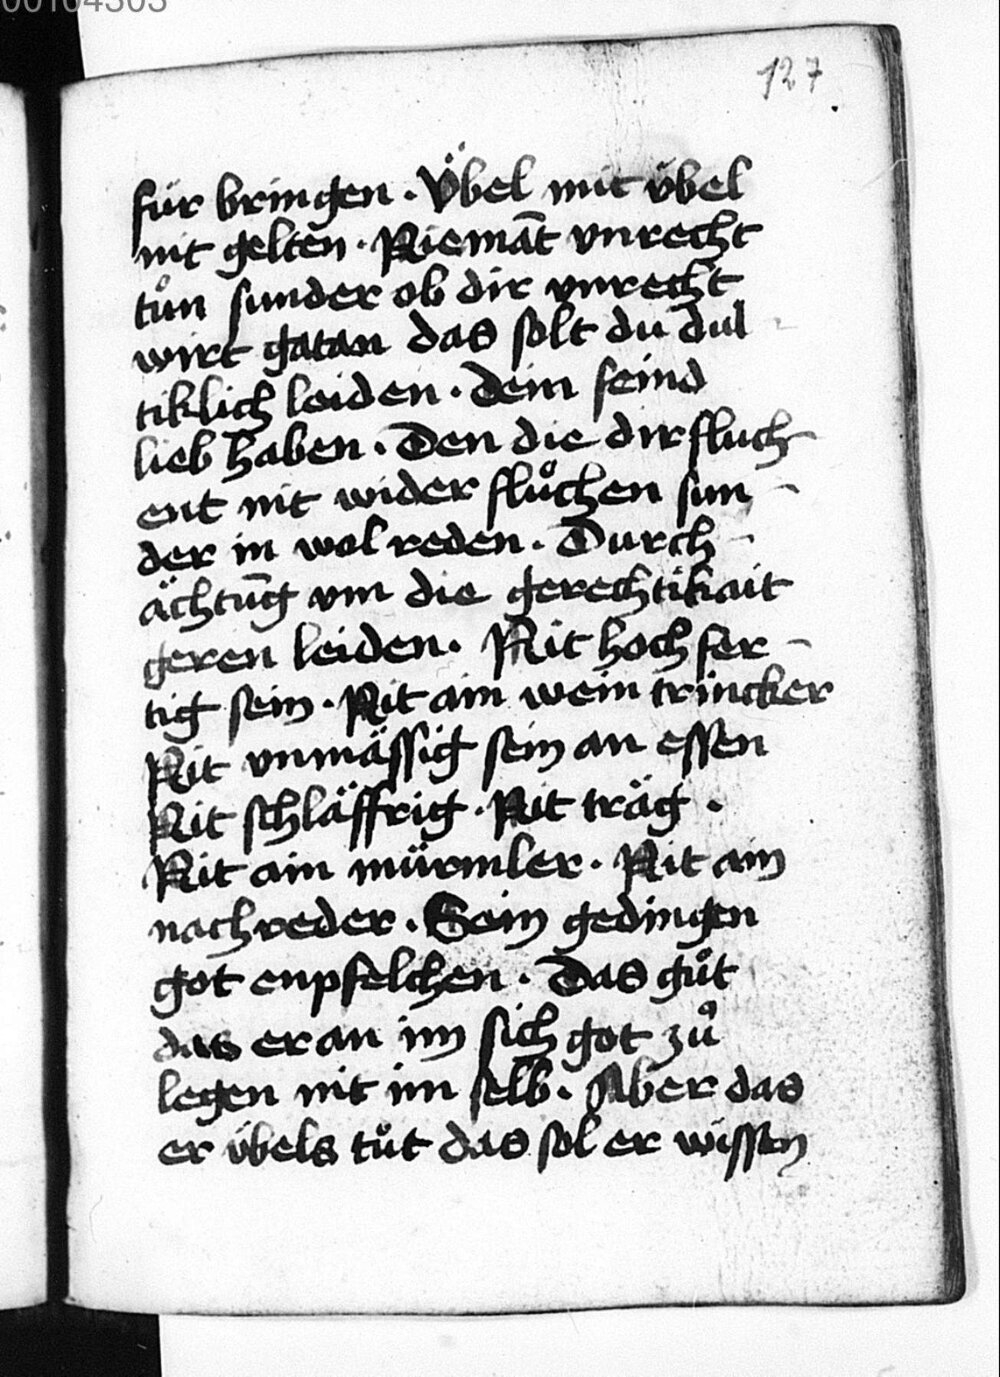 00104303
127
für bringen . Vͤbel mit übel
nit gelten . Niemāt vnrecht
tůn sunder ob dir vnrecht
wirt gatan das solt du dul
tiklich leiden . Dein feind
lieb haben . Den die dir fluch
ent nit wider flůchen sun -
der in wol reden . Durch -
ächtūg vm die gerechtikait
geren leiden . Nit hochfer -
tig sein . Nit ain wein trincker
Nit vnmässig sein an essen
Nit schläffrig . Nit träg .
Nit ain mürmler . Nit ain
nachreder . Sein gedingen
got enpfelchen . Das gůt
das er an im sich got zů
legen nit im selb . Aber das
er übels tůt das sol er wissen